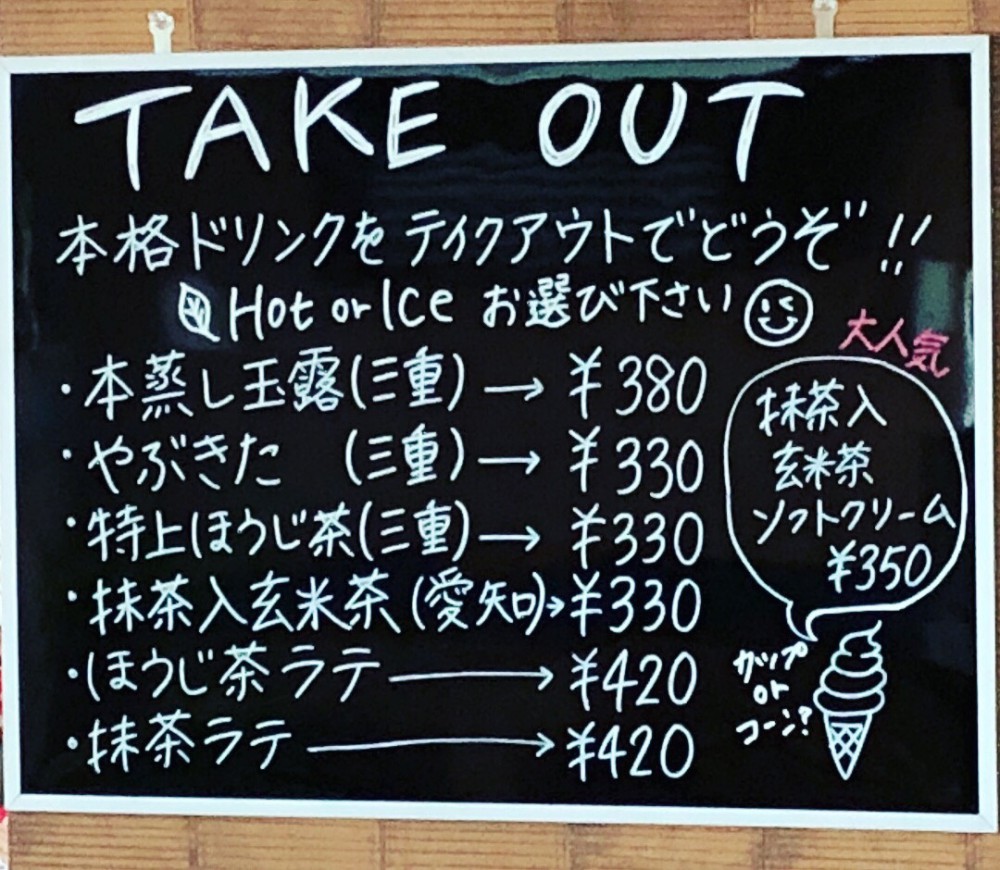 TAKE OUT
本格ドリンクを テイクアウトでどうぞ!!
Hot or Ice お選び下さい
・本蒸し玉露(三重)→ ¥380
・やぶきた (三重)→ ¥330
・特上ほうじ茶(三重)→ ¥330
・抹茶入玄米茶(愛知)→¥330
・ほうじ茶ラテ→¥420
・抹茶ラテ→¥420
大人気
抹茶入
玄米茶
ソフトクリーム
¥350
カップ
or
コーン?